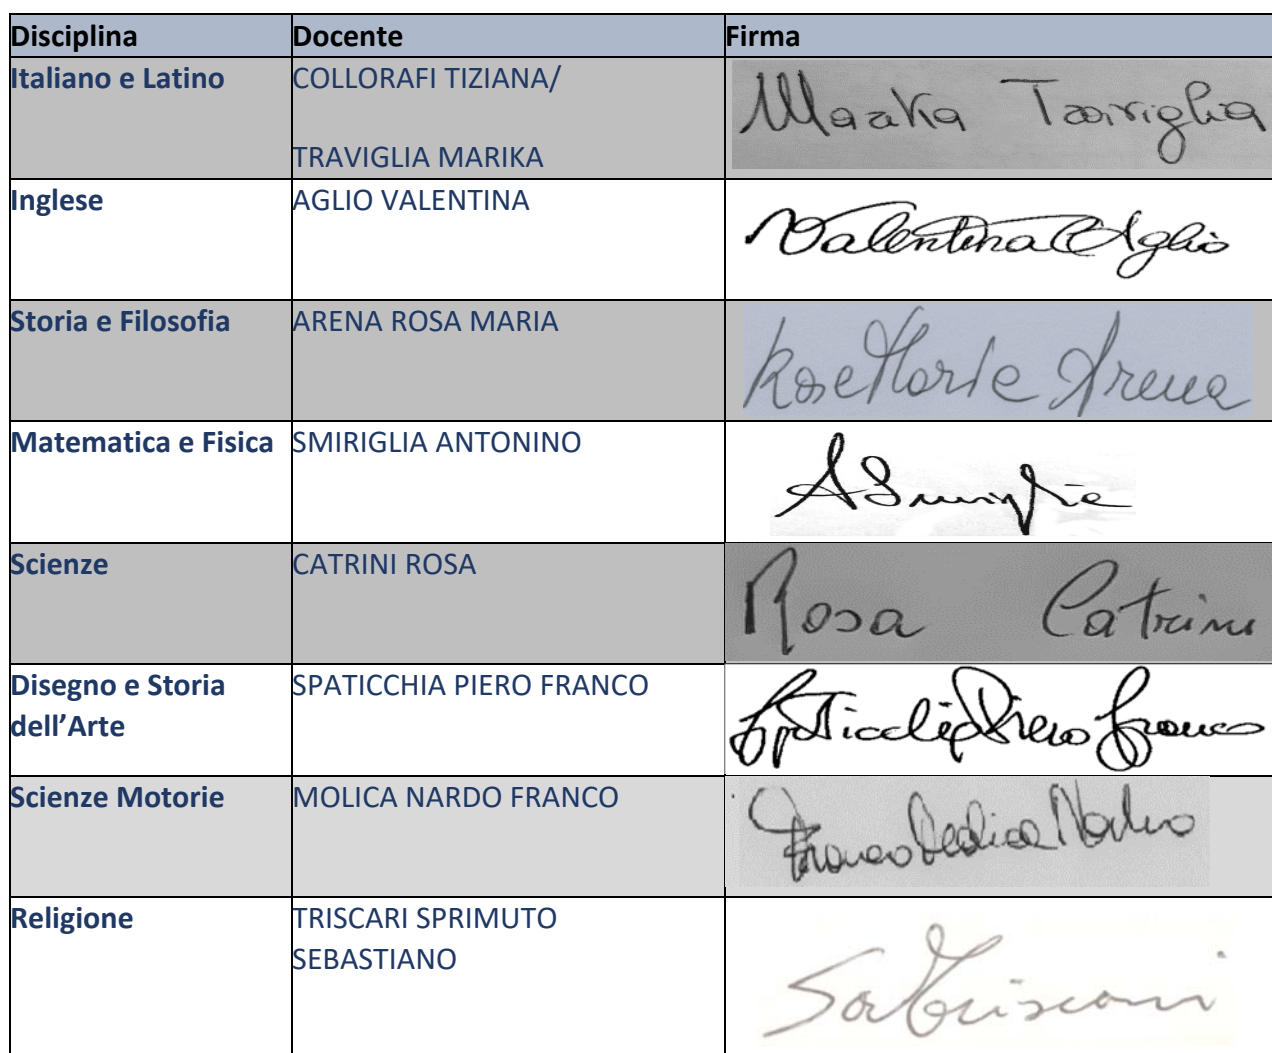 Disciplina Docente Firma
Italiano e Latino COLLORAFI TIZIANA/
TRAVIGLIA MARIKA
Marika Traviglia
Inglese AGLIO VALENTINA
Valentina Aglio
Storia e Filosofia ARENA ROSA MARIA
Rosa Maria Arena
Matematica e Fisica SMIRIGLIA ANTONINO
A Smiriglia
Scienze CATRINI ROSA
Rosa Catrini
Disegno e Storia SPATICCHIA PIERO FRANCO
dell’Arte
Spaticchia Piero Franco
Scienze Motorie MOLICA NARDO FRANCO
Franco Molica Nardo
Religione TRISCARI SPRIMUTO
SEBASTIANO